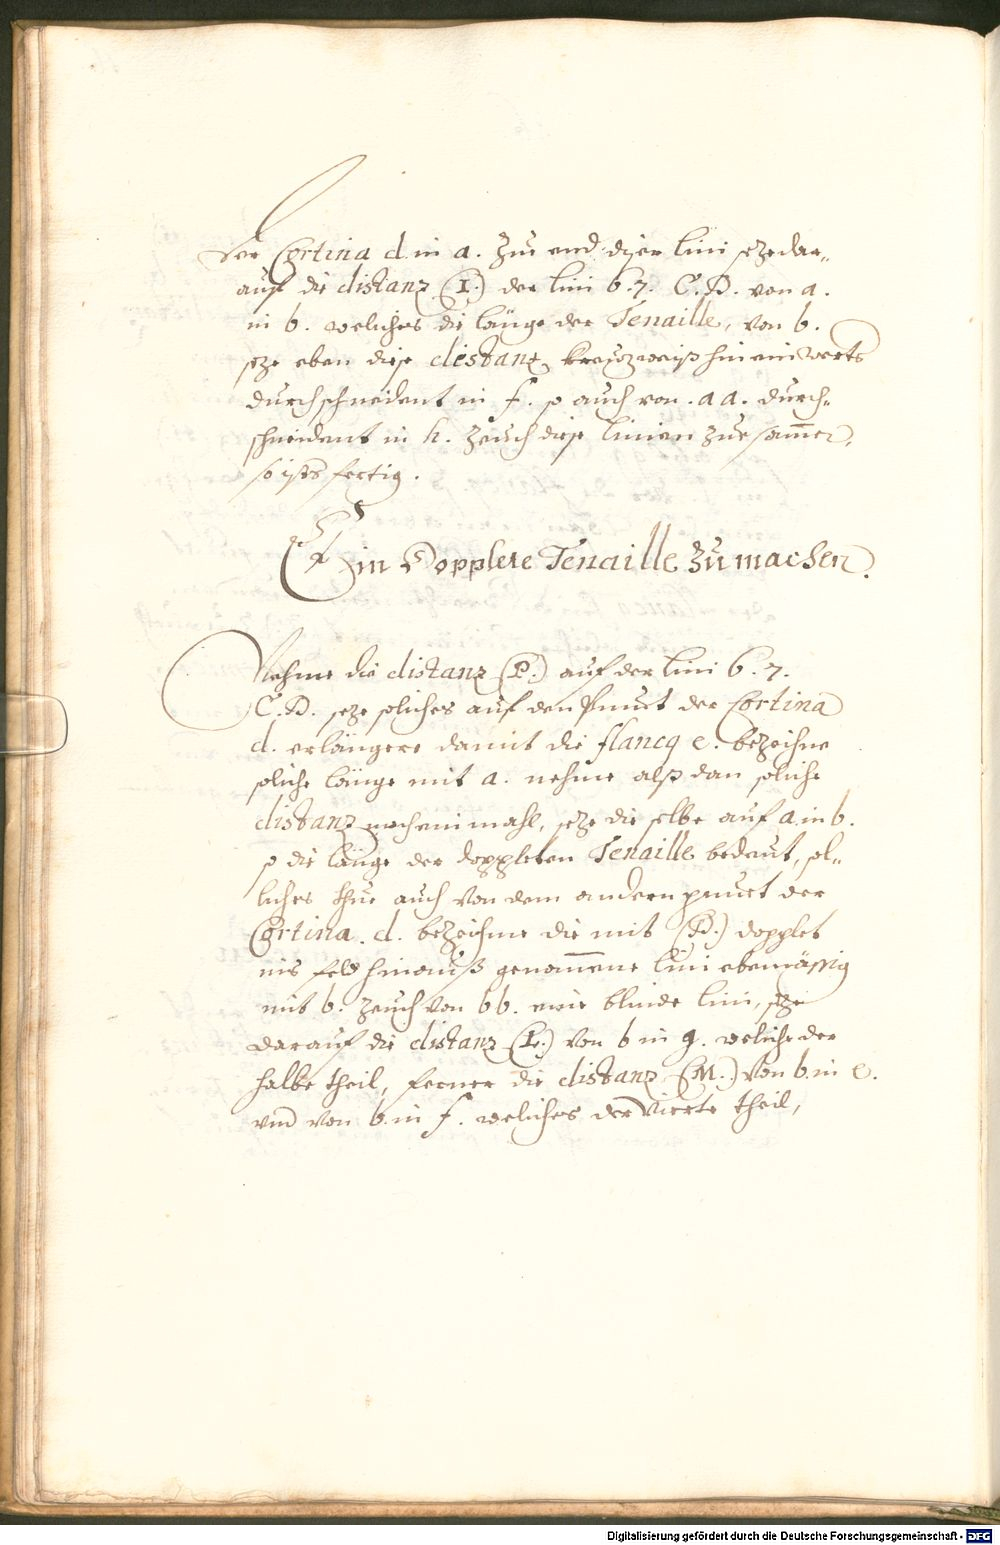 der Cortina d. in a. Zue end diser lini seze dar-
auf die distanz (I.) der lini 6. 7. C. D. von a.
in b. weliches die länge der Tenaille, von b.
seze eben diese distanz kreuzweiß hineinwerts
durchschneident in f. so auch von . a a. durch-
schneident in h. Zeuch diese linien Zuesam̄en,
so ists fertig.
Ein Dopplete Tenaille Zu machen.
Nehme die distanz (P.) auf der lini 6. 7.
C. D. seze soliches auf den Punct der Cortina
d. erlängere damit die flancq e. bezeihne
soliche länge mit a. nehme alß dan soliche
distanz nocheinmahl, seze die selbe auf a. in b.
so die länge der doppleten Tenaille bedeut, sol-
liches thue auch von dem andern punct der
Cortina . d. bezeihne die mit (D.) dopplet
ins feld hinauß genom̄ene lini ebenmässig
mit b. Zeuch von bb. eine blinde lini, seze
darauf die distanz (L.) von b in g. weliche der
halbe theil, ferner die distanz (M.) von b. in e.
und von b. in f. weliches der Vierte theil,
Digitalisierung gefördert durch die Deutsche Forschungsgemeinschaft - DFG